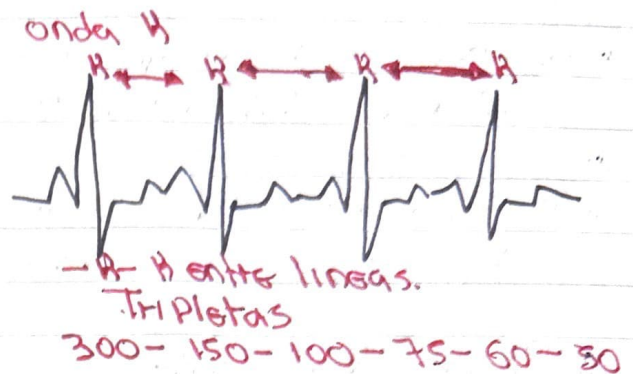 onda R
R R R R
-R- R entre lineas.
Tripletas
300- 150- 100- 75- 60- 50